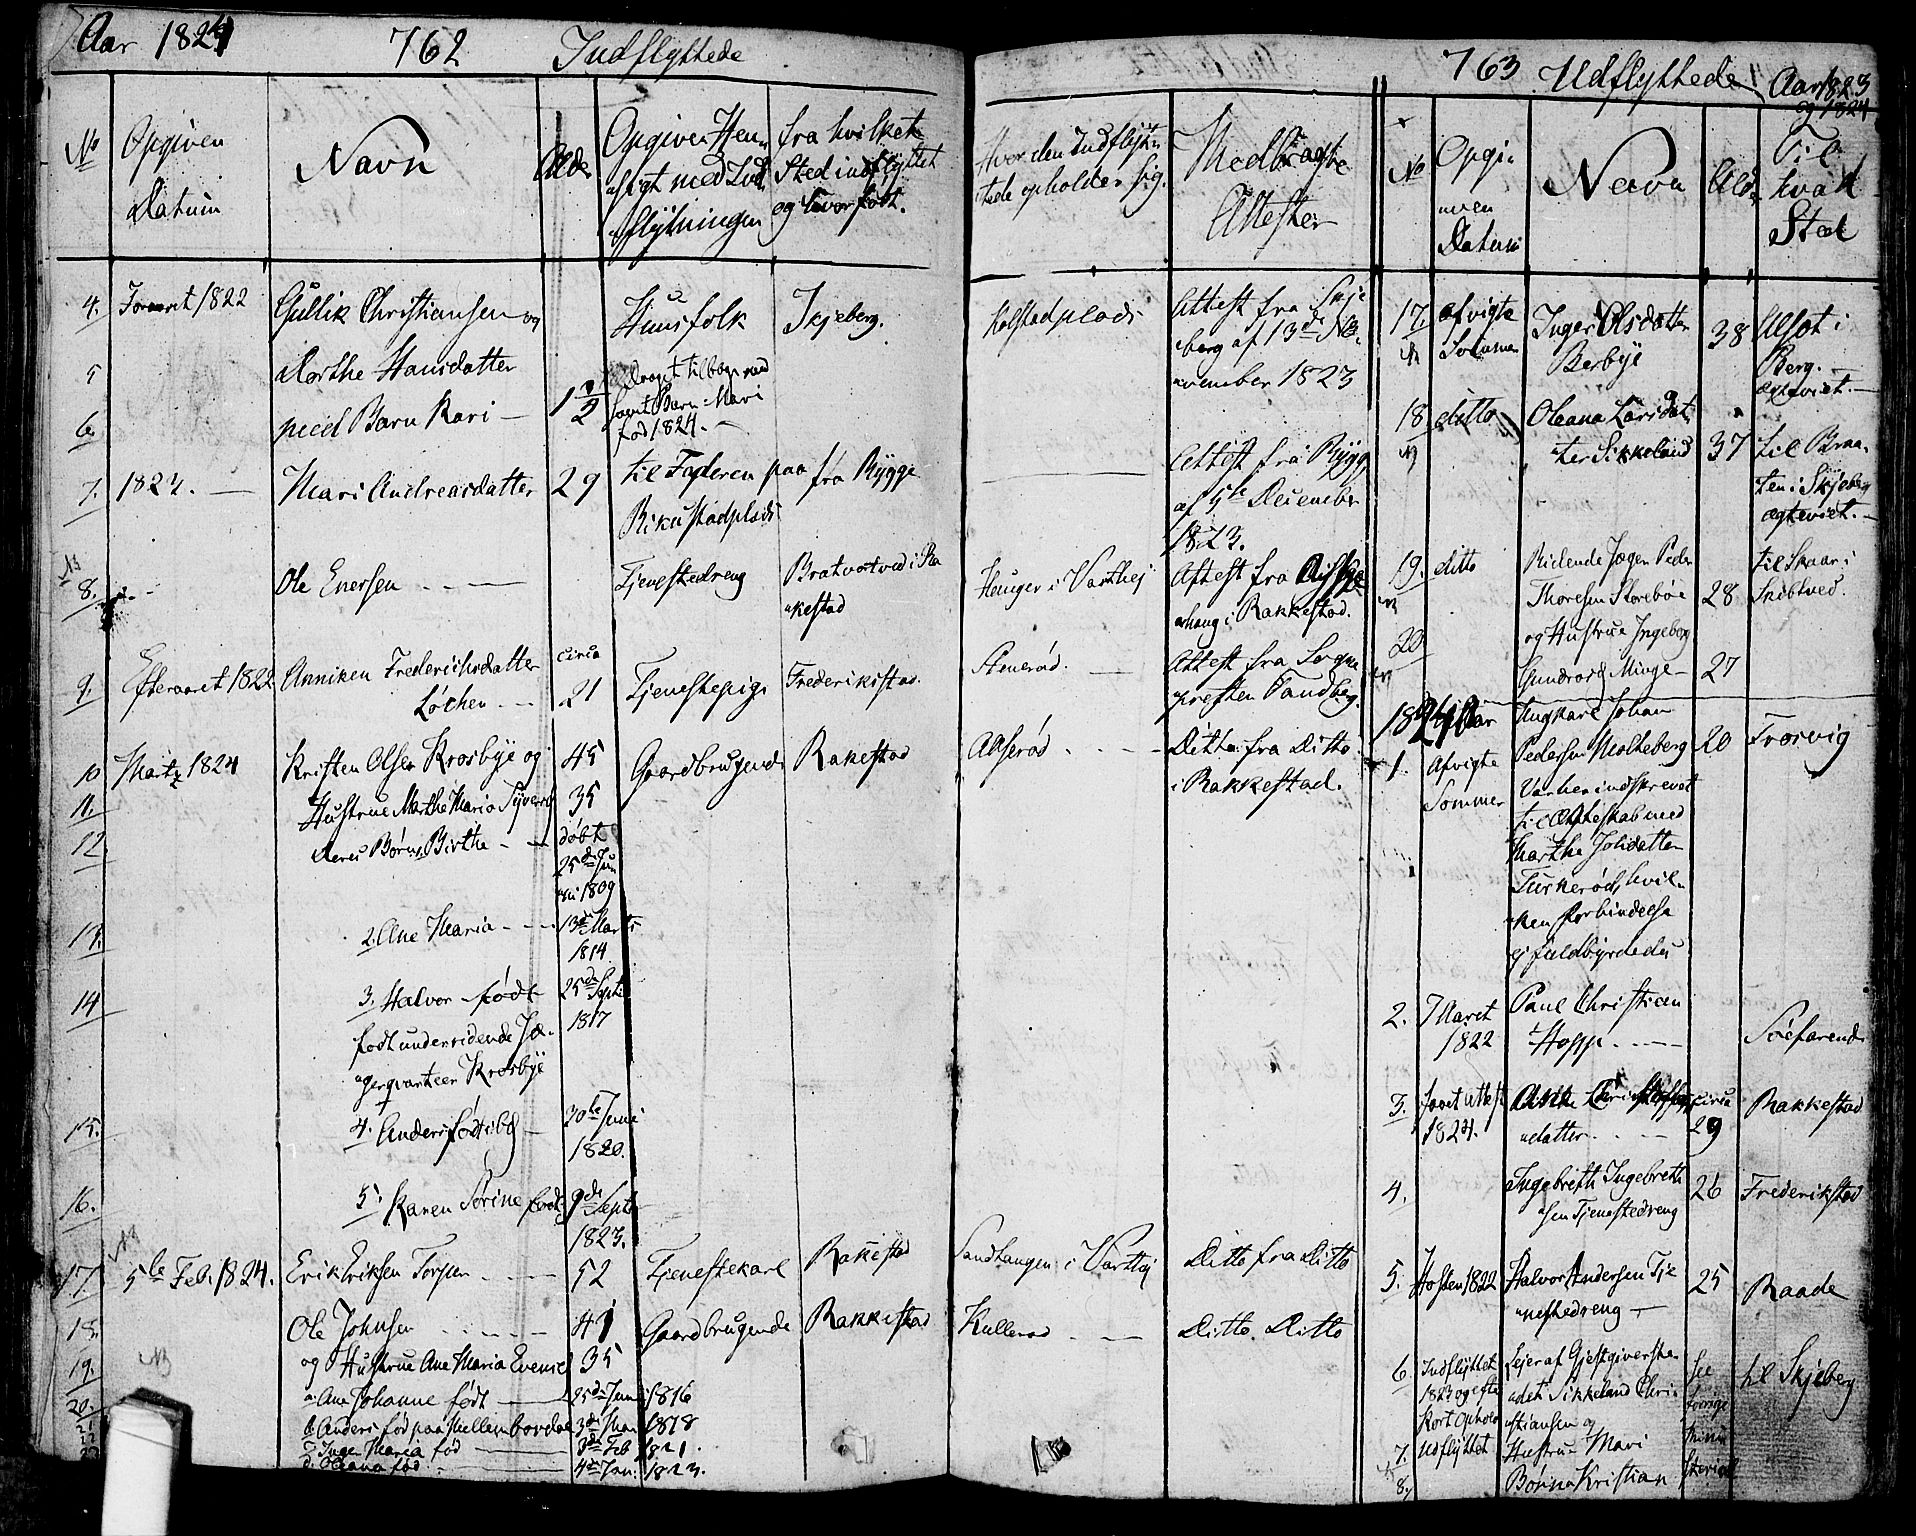 Aar 1824 762 Indflyttede
No
Opgiven
Datum
Navn
Alder
Opgiven Hen-
sigt med Ind-
flytningen
fra hvilket
Sted indflyttet
og hvor født.
Hvor den Indflyt-
tede opholder sig.
Medbragte
Attester
4. Foraaret 1822 Gullik Christiansen og Huusfolk Skjeberg. Kalstadplads
Attest fra Skje
berg af 13de No-
vember 1823
5 Dorthe Hansdatter
draget tilbage med
samt Barn Mari
fød 1824.
6. med Barn Kari 1 1/2
7. 1823. Mari Andreasdatter 29 til Faderen paa fra Rygge
Rikustadplads
Attest fra Rygge
af 5te December
1823.
8. Ole Enersen Tjenestedreng
i Ra
kkestad
Hauger i Varthej
Attest fra
i Rakkestad.
9. Efteraaret 1822 Anniken Frederichsdatter
Løchen
circa
21 Tjenestepige Frederikstad Stenerød.
Attest fra Sogne
præsten Sandberg.
10 Martz 1824 Kristen Olsen Krosbye og 45 Gaardbrugende Rakestad Aaserød Ditto fra Ditto
i Rakkestad.
11. Hustrue Marthe Maria Syvers 35
12 Deres Børn Birthe døbt
25de Jun
ni 1809
13. 2. Ane Maria 13de Marts
1814
14 3. Halvor født 25de Septr
1817
født under ridende Jæ-
gerqvarteer Krosbye
15. 4. Anders født ibd 30te Juni
1820.
16. 5. Karen Sørine født 9de Septr
1823.
17. 5te Feb. 1824. Erik Eriksen Torper 52 Tjenestekarl Rakkestad Sandtangen i Varthej Ditto fra Ditto
18. Ole Johnsen 41 Gaardbrugende Rakkestad Kullerød Ditto. Ditto
19. og Hustrue Ane Maria Evensd 35
20. a. Ane Johanne født 25de Juni 1816
b. Anders fød paa Mellembordal 3de Mar 1818
22 Inger Maria fød 3de Feb 1821.
23 d. Oleana fød 4de Jan. 1823.
763 Udflyttede Aar 1823
og 1824
No
Opgi-
ven
Datum
Navn
Alder
Til
hvad
Sted
17. afvigte
Sommer
Inger Olsdatter
Berbye
38 Alsot i
Berg.
ægteviet.
18 ditto Oleana Larsdat
ter Sikkeland 37 til Braa-
ten i Skjeberg
ægteviet.
19. ditto Ridende Jæger Peder
Thoresen Storebøe 28
til Skaar i
Skibtved.
20 og Hustrue Ingeborg
Gundrosd Minge 27
1824 Aar
1. Afvigte
Sommer
Ungkarl Johan
Pedersen Molteberg 20 Frorvig
Var her indskrevet
til Ægteskab med
Marthe Johsdatter
Turkerød, hvil-
ken forbindelse
ej fuldbyrdedes
2. 7 Maret
1822
Paul Christian
Hopp
Søefarende
3.
1824.
Ane
datter
circa
29
Rakkestad
4. Ingebreth Ingebreth
sen Tjenestedreng
26 Frederikstad
5. Høsten 1822 Halvor Andersen Tje
nestedreng
25 Raade
6. Indflyttet
1823 og efter
kort Ophold
udflyttet
Lejer af Gjestgiverste-
det Sikkeland Chri
stiansen og
7. Hustrue Mari
8. Børn Kristian
see
forrige
til Skjeberg